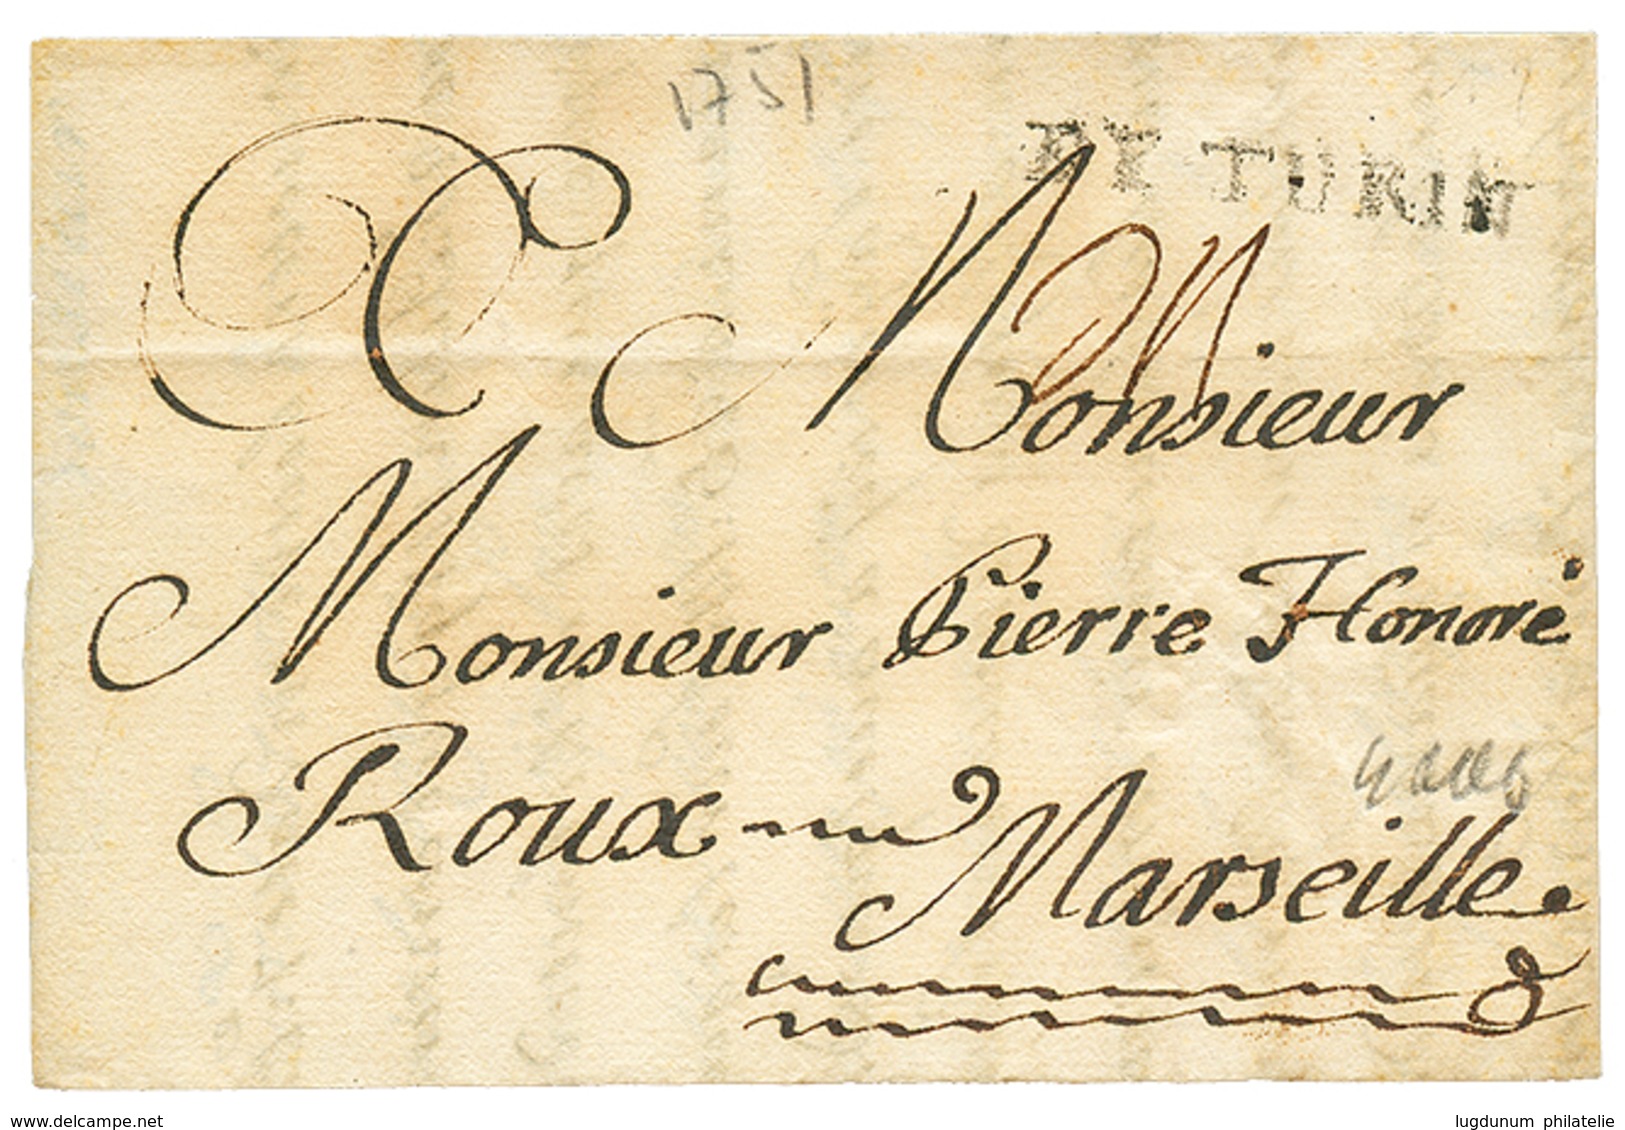 1751
DE TURIN
Monsieur
Monsieur Pierre Honoré
Roux
Marseille
delcampe.net
lugdunum philatelie